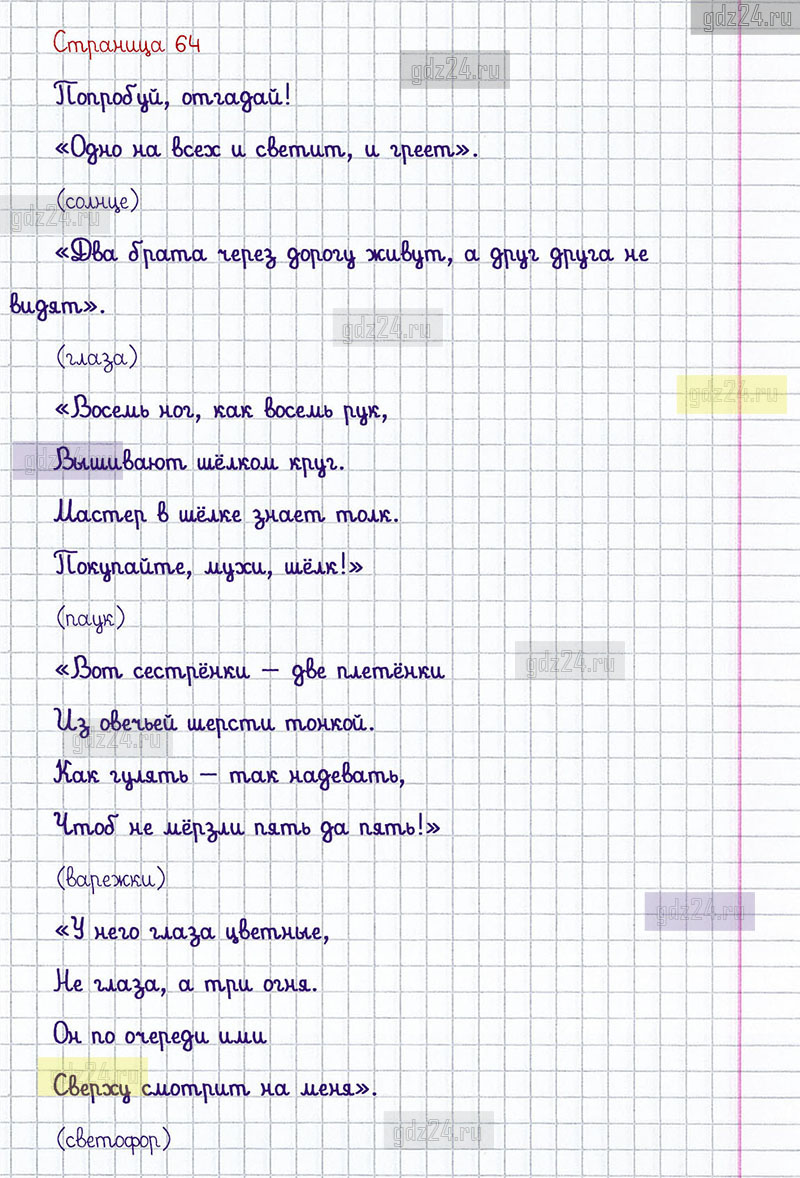 gdz24.ru
Страница 64
gdz24.ru
Попробуй, отгадай!
«Одно на всех и светит, и греет».
(солнце)
gdz24.ru
«Два брата через дорогу живут, а друг друга не
видят».
gdz24.ru
(глаза)
gdz24.ru
«Восемь ног, как восемь рук,
gdz24.ru
Вышивают шёлком круг.
Мастер в шёлке знает толк.
Покупайте, мухи, шёлк!»
(паук)
gdz24.ru
«Вот сестрёнки – две плетёнки
Из овечьей шерсти тонкой.
gdz24.ru
Как гулять – так надевать,
Чтоб не мёрзли пять да пять!»
(варежки)
gdz24.ru
«У него глаза цветные,
Не глаза, а три огня.
Он по очереди ими
gdz24.ru
Сверху смотрит на меня».
gdz24.ru
(светофор)